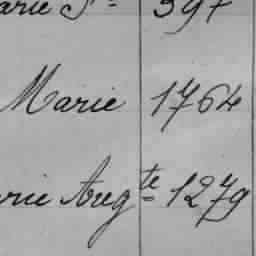 arie J.e 397
Marie 1764
rie Aug.te 1279